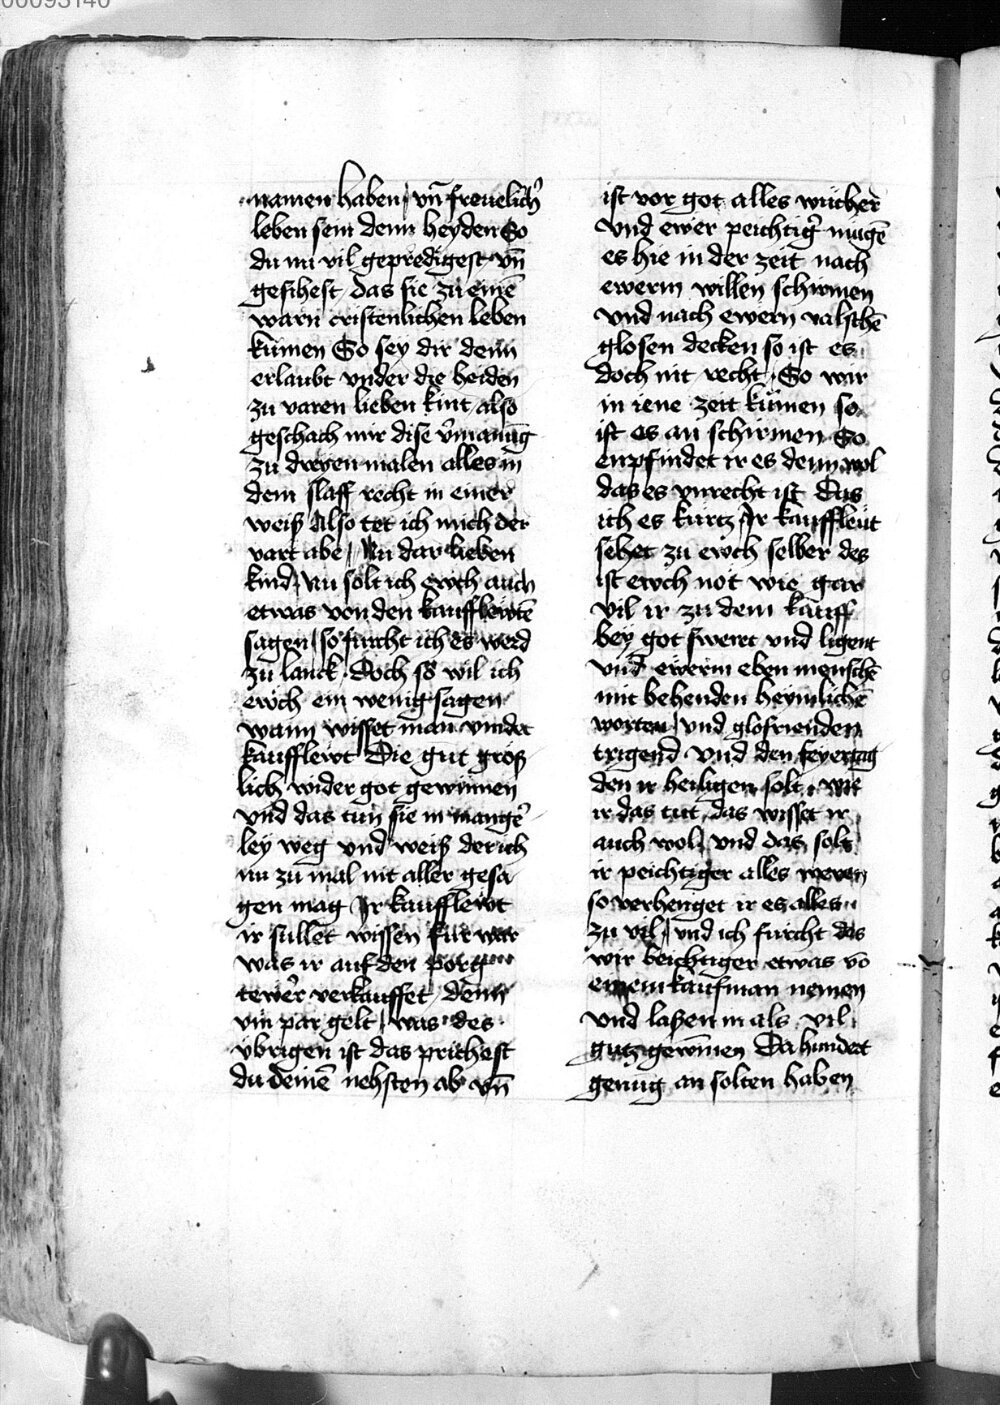 00093140
namen haben / vn̄ freuelich᷑
leben sein denn heyden So
du nu vil gepredigest vn̄
gesihest / das sie zu einē
warn cristenlichen leben
kumen So sey dir denn
erlaubt vnder die heiden
zu varen lieben kint / also
geschach mir dise v᷑manūg
zu dreyen malen alles in
dem slaff recht in einer
weiß Also tet ich mich der
vart abe / Nu dar lieben
kind / Nu solt ich ewch auch
etwas von den kaufflewtē
sagen / so furcht ich es werd
zu lanck Doch so wil ich
ewch ein wenig sagen
wann wisset man vindet
kaufflewt Die gut größ
lich wider got gewinnen
vnd das tun sie in mange᷑
ley weg vnd weiß der ich
nu zu mal nit aller gesa
gen mag Ir kaufflewt
ir sullet wissen fur war
was ir auf den porg
tewe᷑r verkauffet / denn
vm par gelt / was des
vbrigen ist das prichest
du deinē nehsten ab vn̄
ist vor got alles wucher
vnd ewer peichtig᷑ mugē
es hie in der zeit nach
ewerm willen schirmen
vnd nach ewern valschē
glosen decken so ist es
doch nit recht / So wir
in iene zeit kumen so
ist es an schirmen So
enpfindet ir es denn wol
das es vnrecht ist Das
ich es kurtz Ir kauffleut
sehet zu ewch selber des
ist ewch not wie gar
vil ir zu dem kauff
bey got swert vnd ligent
vnd ewerm eben menschē
mit behenden heymlichē
worten / vnd glosirenden
trigend vnd den feyertag
den ir heiligen solt / wie
ir das tut / das wisset ir
auch wol / vnd das solt
ir peichtiger alles weren
so verhenget ir es alles
zu vil / vnd ich furcht das
wir beichtiger etwas vō
einem kaufman nemen
vnd laßen in als vil
gutz gewinnen Da hundert
genug an solten haben